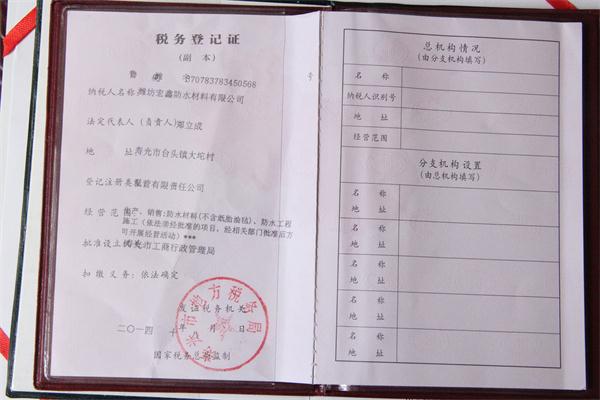 税务登记证
(副 本)
鲁 字 370783783450568 号
纳税人名称 潍坊宏鑫防水材料有限公司
法定代表人(负责人) 郑立成
地 址 寿光市台头镇大坨村
登记注册类型 有限责任公司
经营范围 生产、销售:防水材料(不含纸胎油毡)、防水工程
施工(依法须经批准的项目,经相关部门批准后方
可开展经营活动)***
批准设立机关 寿光市工商行政管理局
扣缴义务:依法确定
发证税务机关
二〇一四 年 十 月 日
国家税务总局监制
市地方税务局
总机构情况
(由分支机构填写)
名 称
纳税人识别号
地 址
经营范围
分支机构设置
(由总机构填写)
名 称
地 址
名 称
地 址
名 称
地 址
名 称
地 址
名 称
地 址